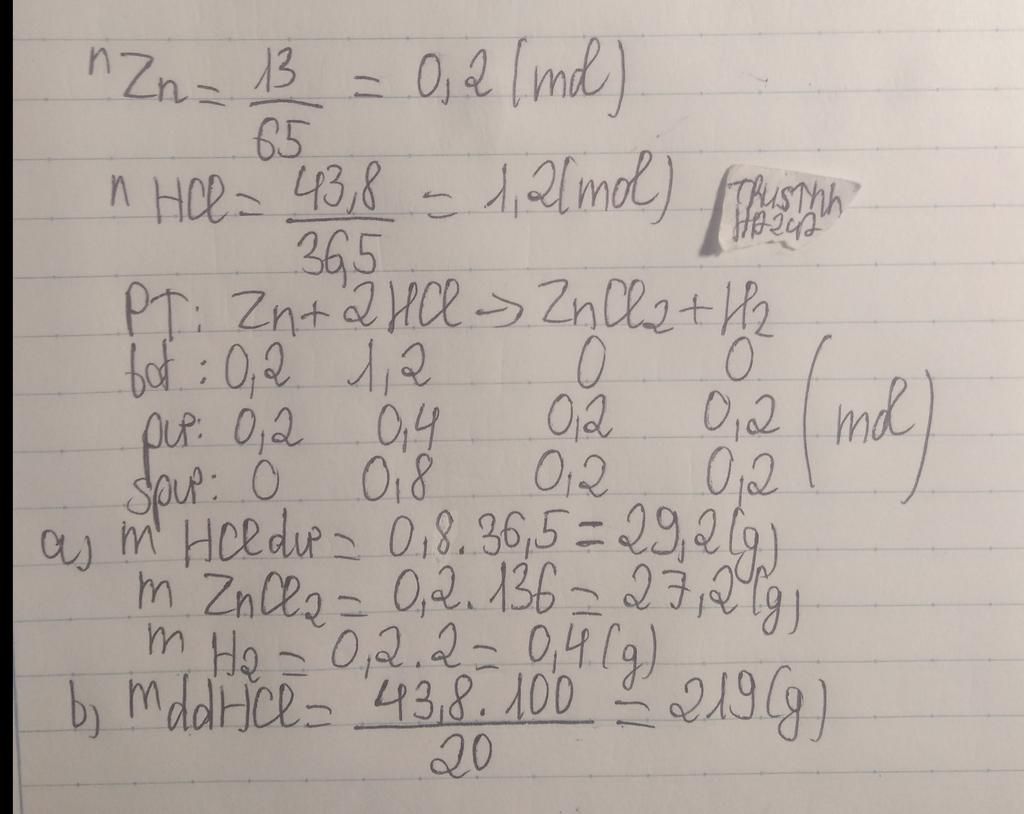 nZn = 13/65 = 0,2 (mol)
nHCl = 43,8/36,5 = 1,2 (mol)
TRUSTnhh
PT: Zn + 2HCl → ZnCl₂ + H₂
bđ: 0,2 1,2 0 0
pư: 0,2 0,4 0,2 0,2 (mol)
spư: 0 0,8 0,2 0,2
a) mHCl dư = 0,8.36,5 = 29,2 (g)
mZnCl₂ = 0,2.136 = 27,2 (g)
mH₂ = 0,2.2 = 0,4 (g)
b) mddHCl = 43,8.100/20 = 219 (g)